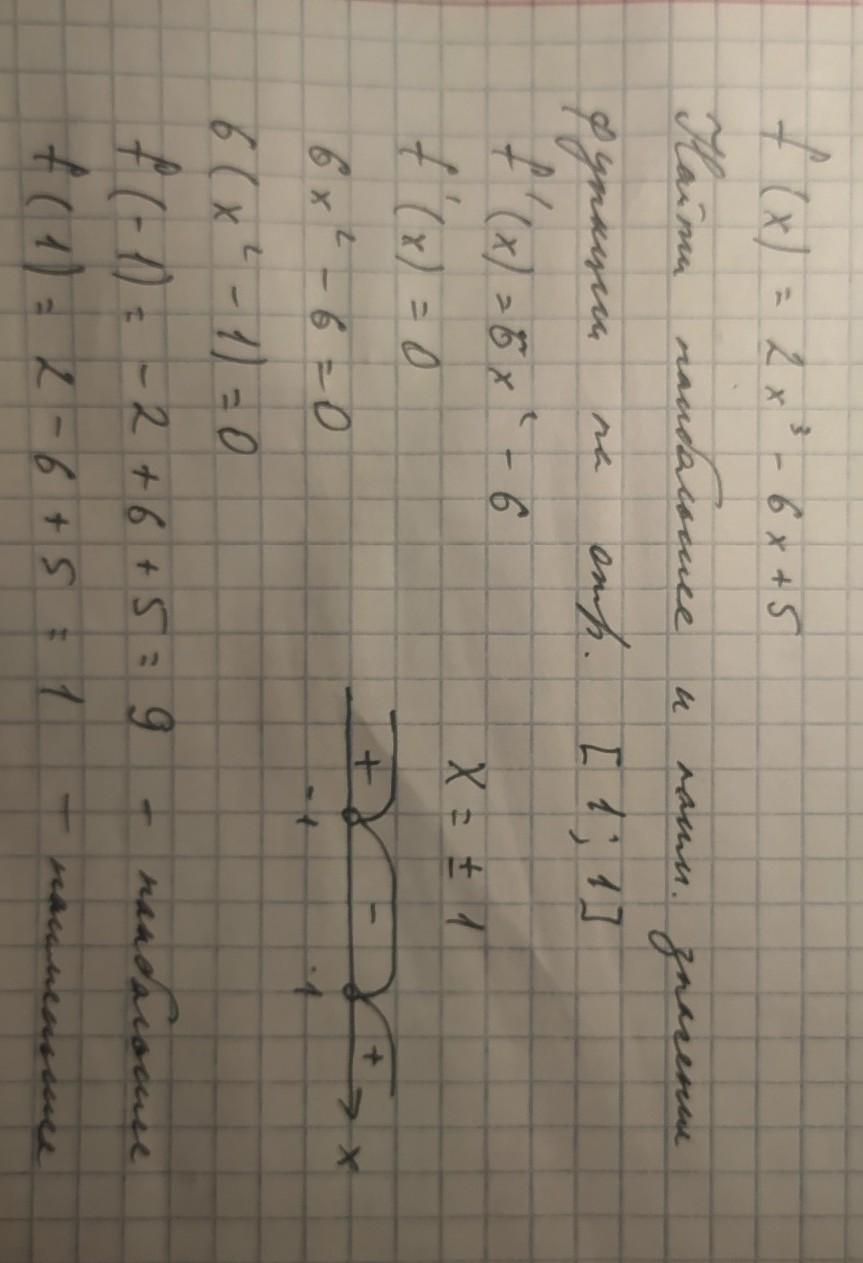 f(x) = 2x³ - 6x + 5
Найти наибольшее и наим. значение
функции на отр. [1; 1]
f'(x) = 6x² - 6
f'(x) = 0
x = ± 1
6x² - 6 = 0
+ - +
-1 1 x
6(x² - 1) = 0
f(-1) = -2 + 6 + 5 = 9 - наибольшее
f(1) = 2 - 6 + 5 = 1 - наименьшее